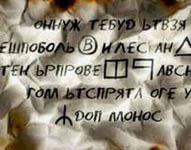 ОННУЖ ТЕБУД ЬТВЗЯ
ЕШПОБОЛЬ В ИЛЕС АН
ТЕН ЬРПРОВЕ АВСН
ГОМ ЬТСПРЯТА ОГЕ У
ДОП МОНОС